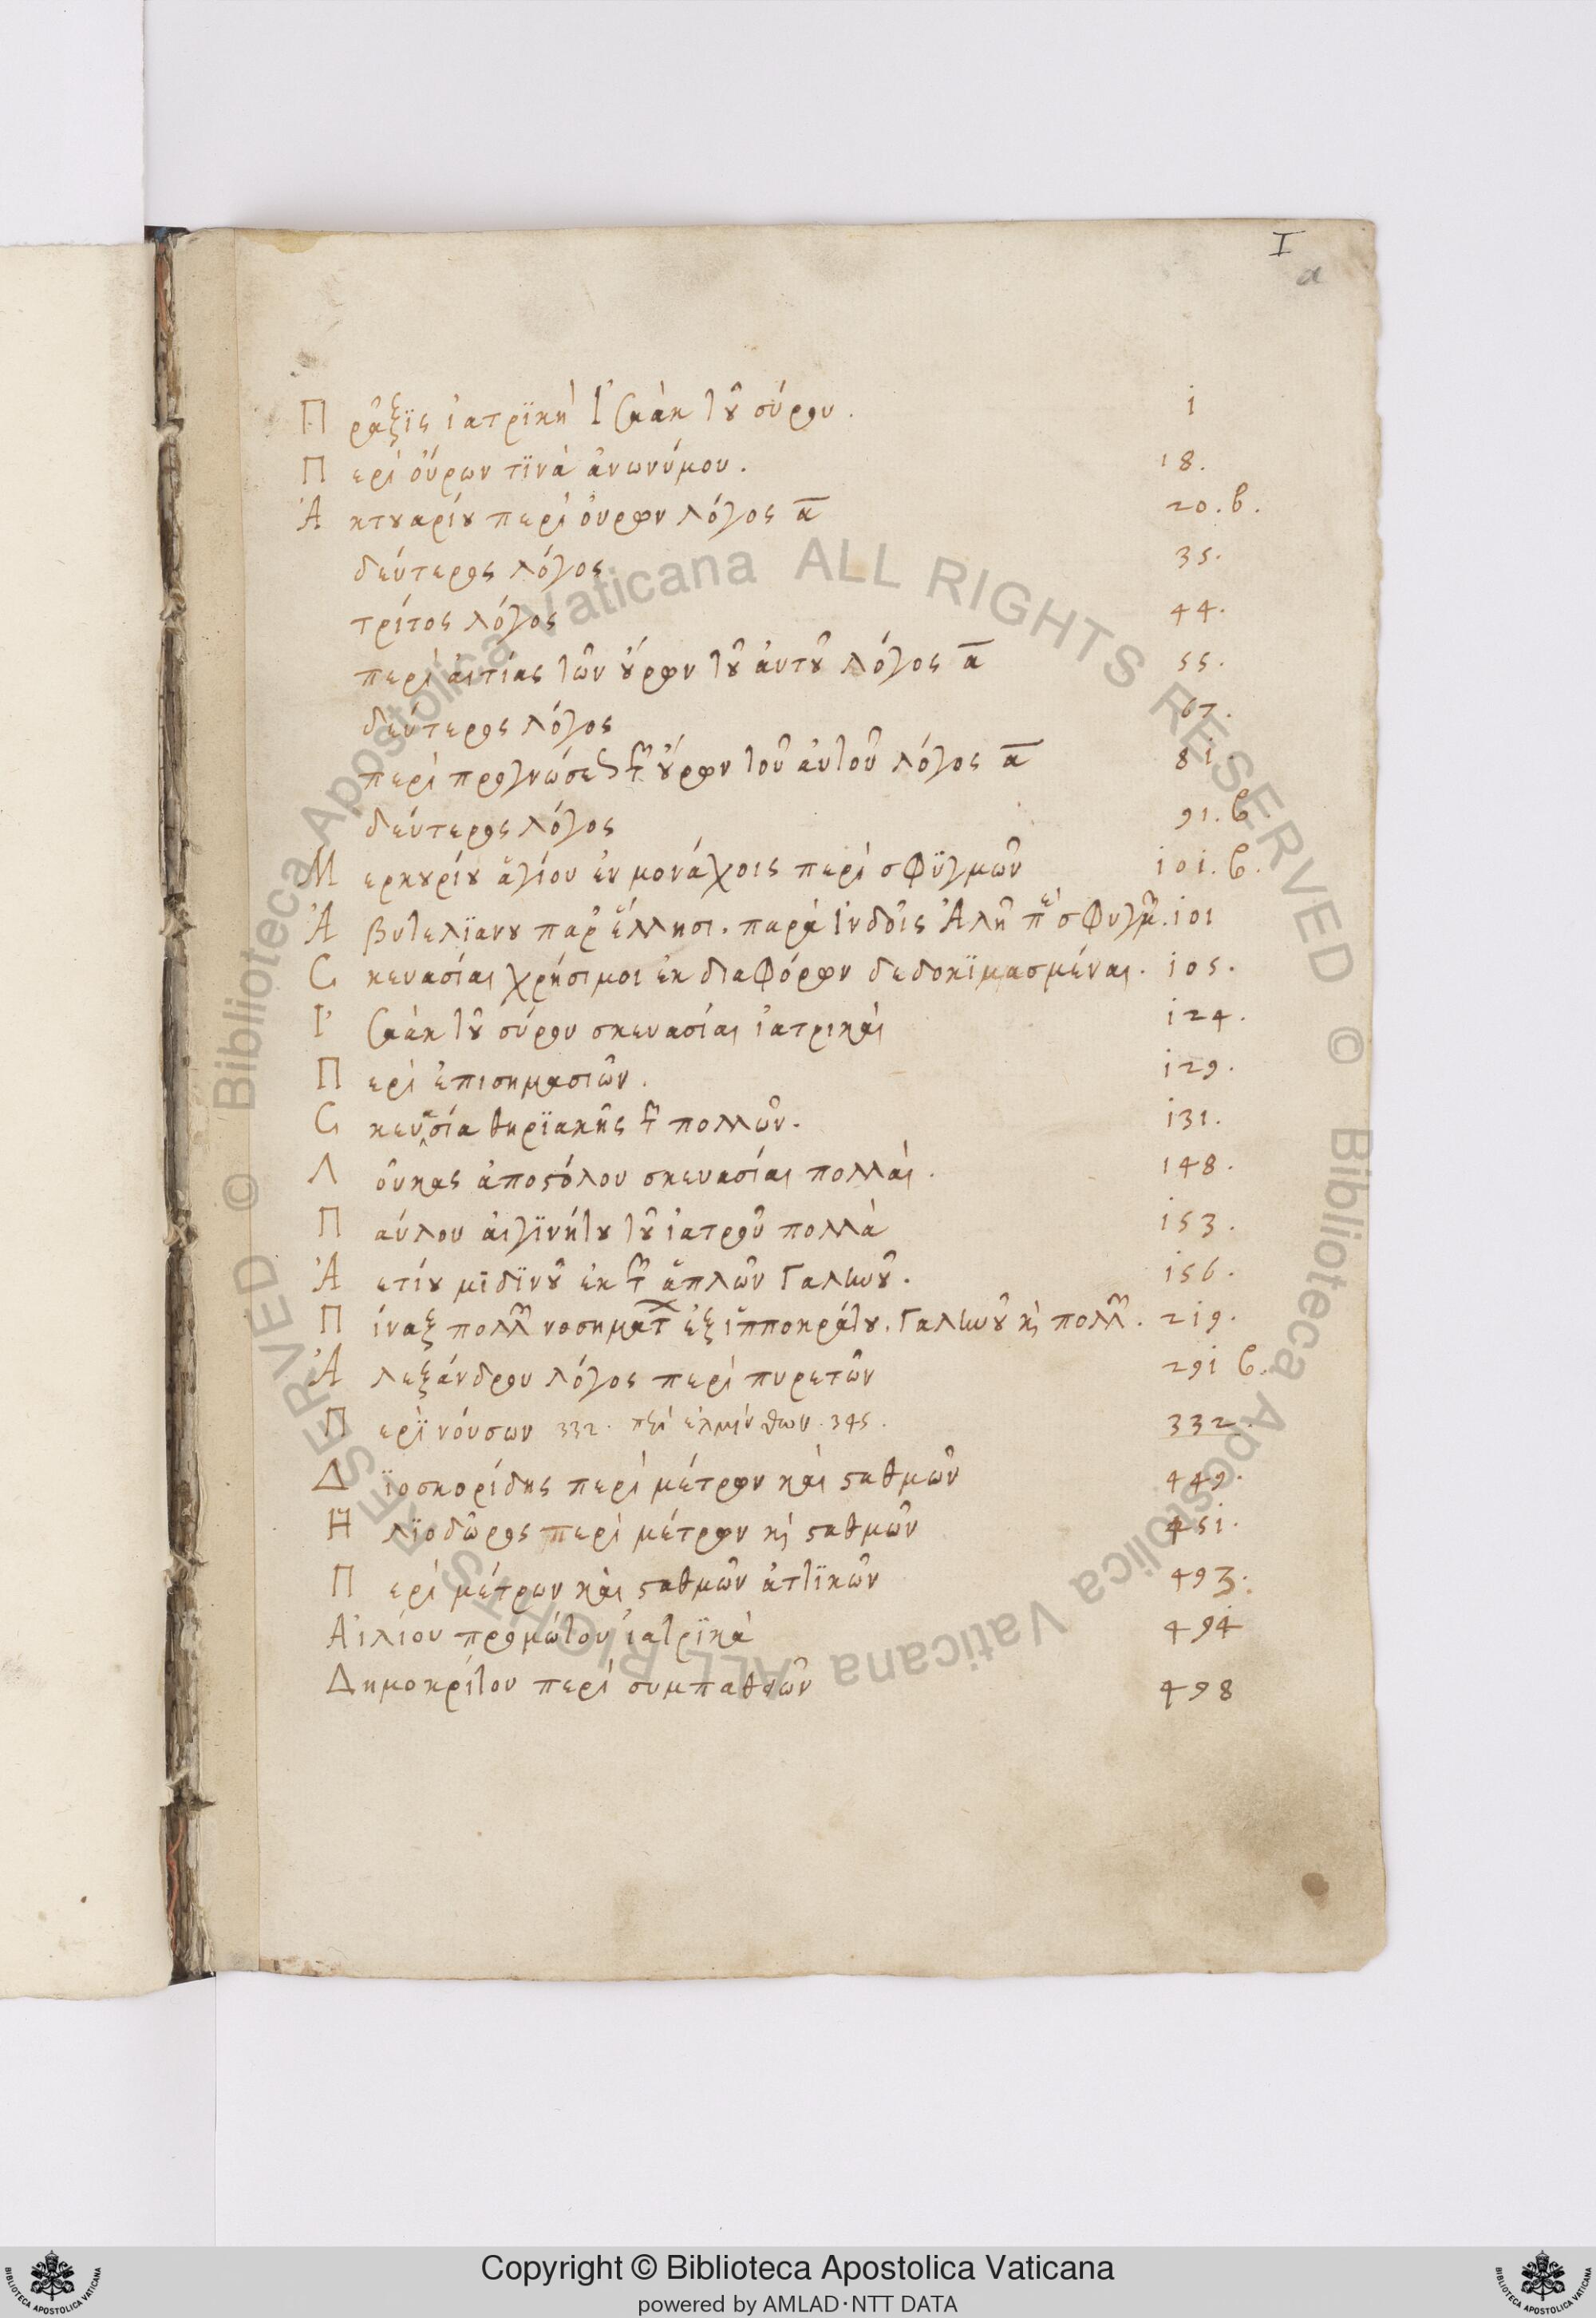 I
a
Πρᾶξϊς ἰατρϊκὴ Ἰσαὰκ τοῦ σύρου. 1
Περὶ οὔρων τϊνὰ ἀνωνύμου. 18.
Ἀκτουαρίου περὶ οὔρων λόγος α̅ 20.b.
δεύτερος λόγος 35.
τρίτος λόγος 44.
περὶ ἀιτίας τῶν οὔρων τοῦ ἀυτοῦ λόγος α̅ 55.
δεύτερος λόγος 67.
περὶ προγνώσεως τῶν οὔρων τοῦ ἀυτοῦ λόγος α̅ 81.
δεύτερος λόγος 91.b
Μερκουρίου ἁγίου ἐν μονάχοις περὶ σφϋγμῶν 101.b.
Ἀβυτελϊανου παρ' ἕλλησι. παρὰ Ἰνδοῖς Ἀλῆ περὶ σφυγμῶν. 101
Σκευασίαι χρήσιμοι ἐκ διαφόρων δεδοκϊμασμέναι. 105.
Ἰσαὰκ τοῦ σύρου σκευασίαι ἰατρικαὶ 124.
Περὶ ἐπισημασιῶν. 129.
Σκευασία θηρϊακῆς τῶν πολλῶν. 131.
Λουκᾶς ἀποστόλου σκευασίαι πολλαὶ. 148.
Παύλου ἀιγϊνήτου τοῦ ἰατροῦ πολλὰ 153.
Ἀετίου μϊδϊνοῦ ἐκ τῶν ἁπλῶν Γαληνοῦ. 156.
Πίναξ πολλῶν νοσημάτων ἐξ ἱπποκράτου. Γαληνοῦ καὶ πολλῶν. 219.
Ἀλεξάνδρου λόγος περὶ πυρετῶν 291 b.
Περϊ νούσων 332. περὶ ἑλμίνθων. 345. 332.
Δϊοσκορίδης περὶ μέτρων καὶ σταθμῶν 449.
Ηλϊοδῶρος περὶ μέτρων καὶ σταθμῶν 451.
Περὶ μέτρων καὶ σταθμῶν ἀττϊκῶν 493.
Ἀιλίου προμώτου ἰατρϊκὰ 494
Δημοκρίτου περὶ συμπαθειῶν 498
Copyright © Biblioteca Apostolica Vaticana
powered by AMLAD·NTT DATA